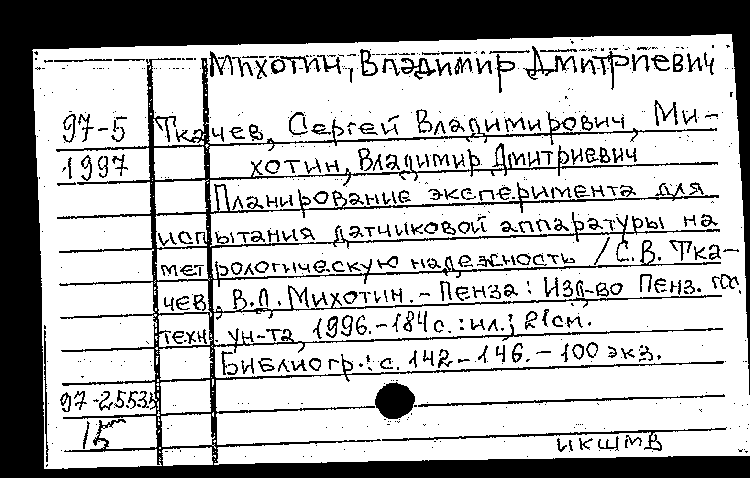 Михотин, Владимир Дмитриевич
97-5 Ткачев, Сергей Владимирович, Ми-
1997 хотин, Владимир Дмитриевич
Планирование эксперимента для
испытания датчиковой аппаратуры на
метрологическую надежность / С.В. Тка-
чев, В.Д. Михотин. - Пенза : Изд-во Пенз. гос.
техн. ун-та, 1996. - 184 с. : ил.; 21 см.
Библиогр.: с. 142-146. - 100 экз.
97-25535
15